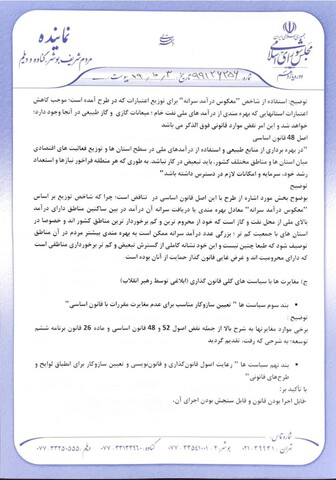 نماینده
مردم شریف بوشهر، گناوه و دیلم
مجلس شورای اسلامی
تاریخ ۹۹/۱۰/۳ پیوست
توضیح: استفاده از شاخص "معکوس درآمد سرانه" برای توزیع اعتبارات که در طرح آمده است؛ موجب کاهش
اعتبارات استانهایی که بهره مندی از درآمد های ملی نفت خام ، میعانات گازی و گاز طبیعی در آنجا وجود دارد؛
خواهد شد و این امر نقض موارد قانونی فوق الذکر می باشد
اصل 48 قانون اساسی
"در بهره برداری از منابع طبیعی و استفاده از درآمدهای ملی در سطح استان ها و توزیع فعالیت های اقتصادی
میان استان ها و مناطق مختلف کشور، باید تبعیض در کار نباشد. به طوری که هر منطقه فراخور نیازها و استعداد
رشد خود، سرمایه و امکانات لازم در دسترس داشته باشد"
توضیح
موضوع بخش مورد اشاره از طرح با این اصل قانون اساسی در تناقض است؛ چرا که شاخص توزیع بر اساس
"معکوس درآمد سرانه" معادل بهره مندی یا دریافت سرانه آن درآمد در بین ساکنین مناطق دارای درآمد
بالای ملی از محل نفت و گاز است که خود از محروم ترین و کم برخوردار ترین مناطق کشور اند و خصوصا در
استان های با جمعیت کم تر ؛ بزرگی عدد درآمد سرانه ممکن است به بهره مندی بیشتر مردم در آن مناطق
توصیف شود که طبعا چنین نیست و این خود نشانه کاملی از گسترش تبعیض و کم تر برخورداری مناطقی است
که دارای محرومیت اند و غرض غایی قانون گذار حمایت از آنان بوده است.
ج) مغایرت ها با سیاست های کلی قانون گذاری (ابلاغی توسط رهبر انقلاب)
- بند سوم سیاست ها " تعیین سازوکار مناسب برای عدم مغایرت مقررات با قانون اساسی"
توضیح :
برخی موارد مغایرتها به شرح بالا از جمله نقض اصول 52 و 48 قانون اساسی و ماده 26 قانون برنامه ششم
توسعه؛ به شرحی که رفت، تقدیم گردید
- بند نهم سیاست ها " رعایت اصول قانون‌گذاری و قانون‌نویسی و تعیین سازوکار برای انطباق لوایح و
طرح‌های قانونی"
با تأکید بر:
-قابل اجرا بودن قانون و قابل سنجش بودن اجرای آن.
تهران : ۰۲۱-۳۹۹۳۱
بوشهر : ۰۷۷-۳۳۵۴۱۰۰۱
گناوه : ۰۷۷-۳۳۱۳۳۹۶۰
دیلم : ۰۷۷-۳۳۲۵۰۵۵۵